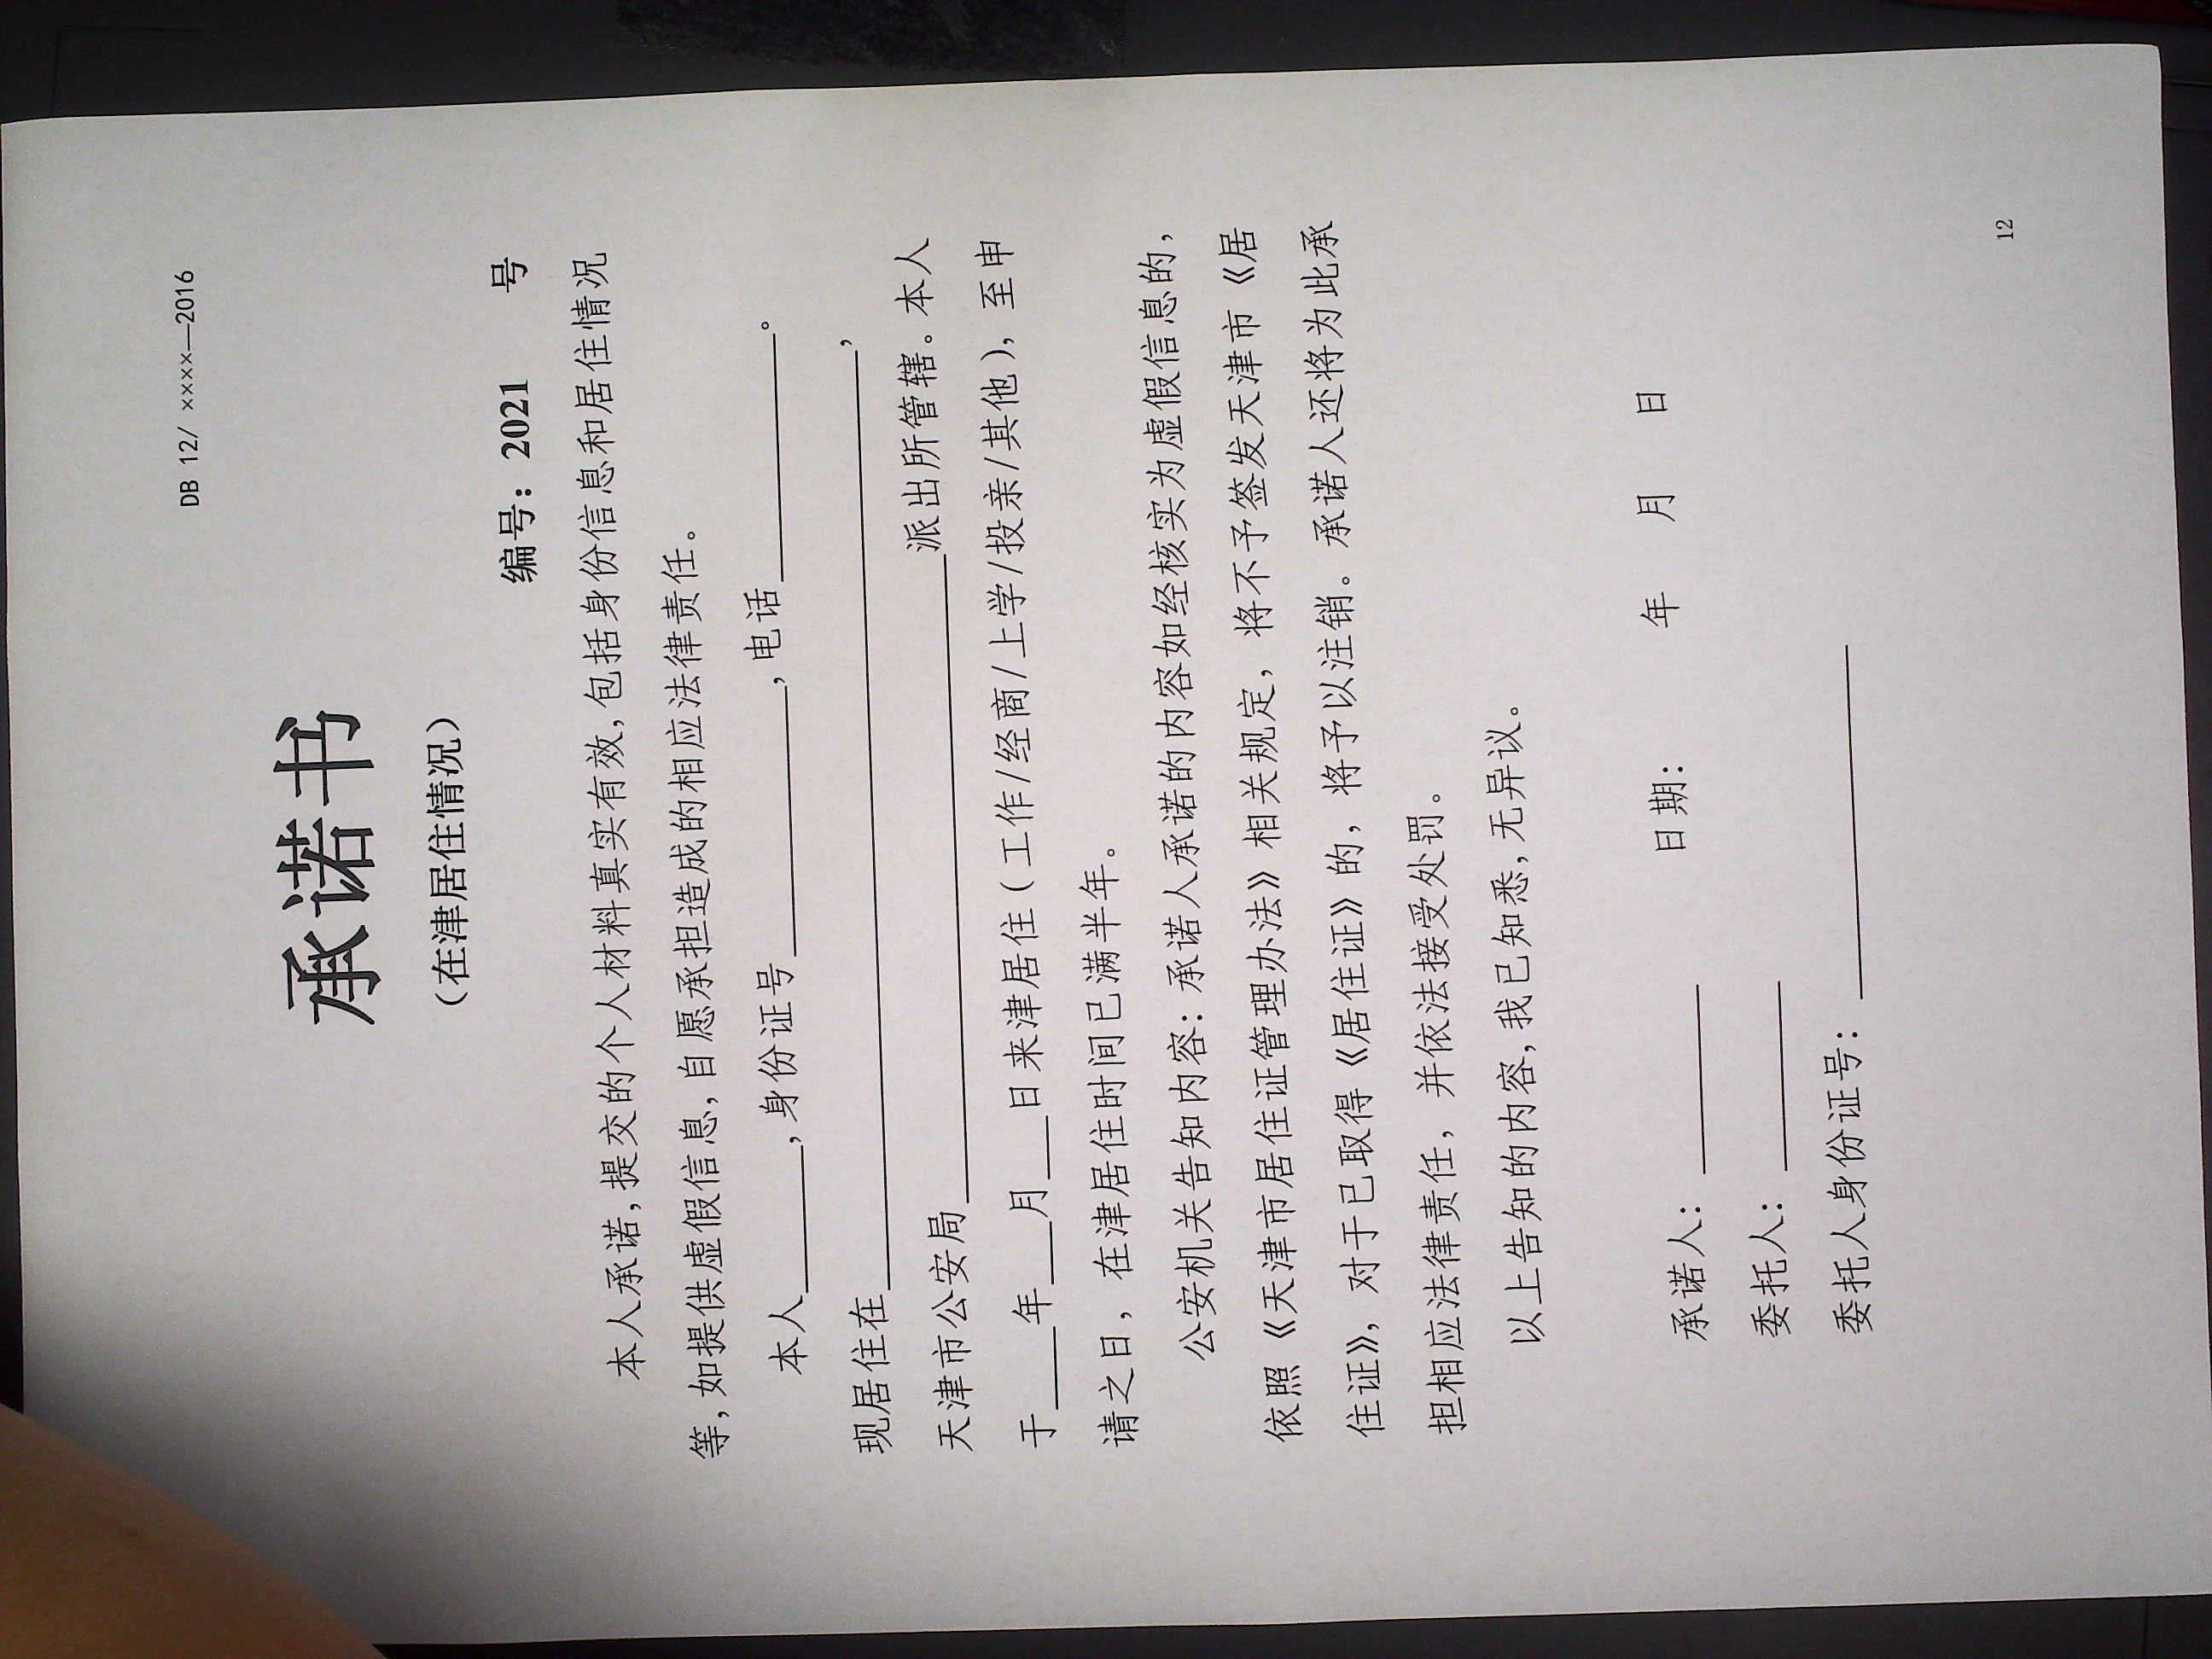 DB 12/ ××××—2016
承诺书
（在津居住情况）
编号：2021 号
本人承诺，提交的个人材料真实有效，包括身份信息和居住情况
等，如提供虚假信息，自愿承担造成的相应法律责任。
本人________，身份证号________________，电话______________。
现居住在____________________________________________________，
天津市公安局__________________________________派出所管辖。本人
于____年___月___日来津居住（工作/经商/上学/投亲/其他），至申
请之日，在津居住时间已满半年。
公安机关告知内容：承诺人承诺的内容如经核实为虚假信息的，
依照《天津市居住证管理办法》相关规定，将不予签发天津市《居
住证》，对于已取得《居住证》的，将予以注销。承诺人还将为此承
担相应法律责任，并依法接受处罚。
以上告知的内容，我已知悉，无异议。
承诺人：__________ 日期： 年 月 日
委托人：__________
委托人身份证号：____________________
12